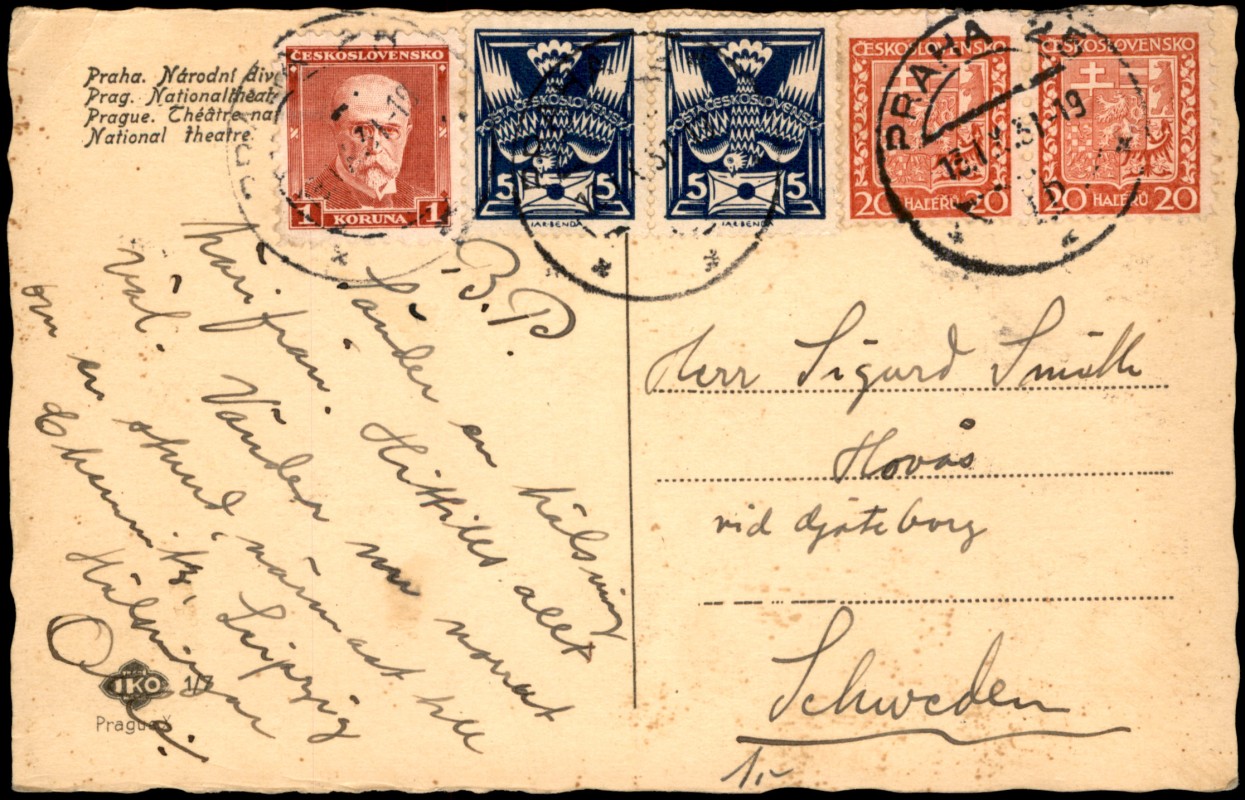 Praha. Národní div
Prag. Nationaltheat
Prague. Théâtre nat
National theatre.
ČESKOSLOVENSKO
1 KORUNA 1
POŠTA ČESKOSLOVENSKÁ
5 5
JAR.BENDA
POŠTA ČESKOSLOVENSKÁ
5 5
JAR.BENDA
ČESKOSLOVENSKO
20 HALÉŘŮ 20
ČESKOSLOVENSKO
20 HALÉŘŮ 20
PRAHA
31-19
B.P.
Sänder en hälsning
härifrån. Hittills allt
väl. Vänder nu norrut
om en stund, närmast till
Chemnitz, Leipzig
Hälsningar
IKO 1/7
Prague X
Herr Sigurd
Hovås
vid Göteborg
Schweden
1:-